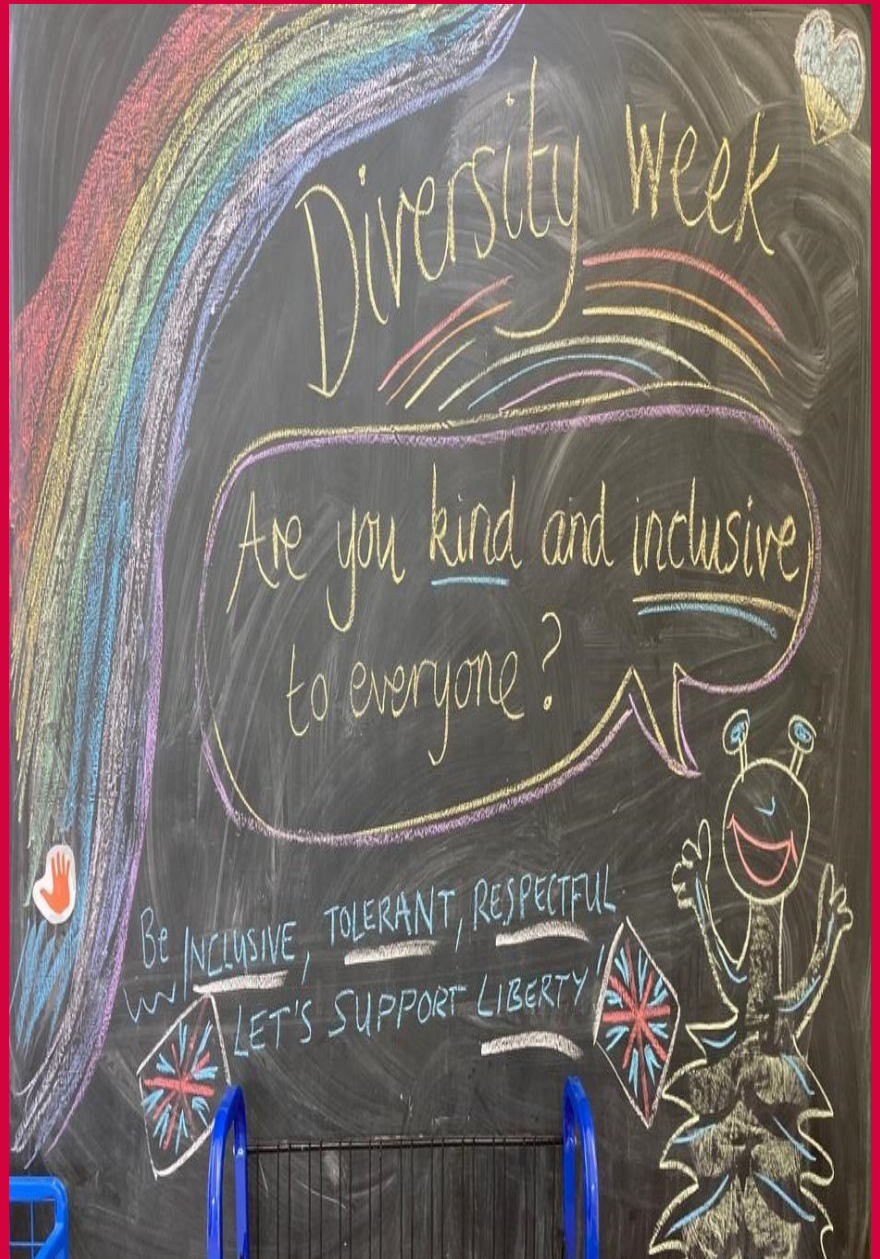 Diversity Week
Are you kind and inclusive
to everyone?
Be INCLUSIVE, TOLERANT, RESPECTFUL
LET'S SUPPORT LIBERTY!